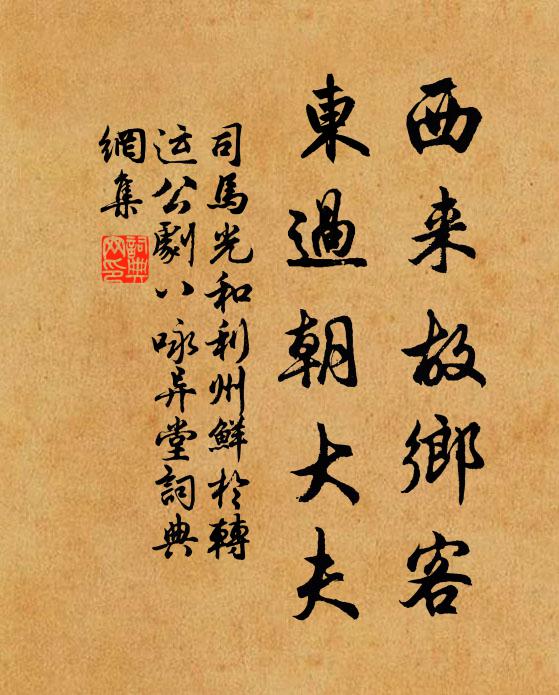 西来故鄉客
東過朝大夫
司馬光和利州鮮於轉
运公劇八咏异堂詞典
網集
詞典网印